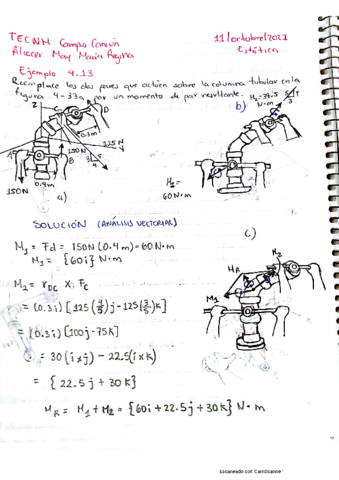 TECNM Campus Cancún
11/octubre/2021
Estática
Alcocer May María Regina
Ejemplo 4.13
Reemplace los dos pares que actúen sobre la columna tubular en la
figura 4-33a por un momento de par resultante.
b)
M2 = 37.5
N·m
5
3
Z
D
0.3m
125N
150N
A
B
Y
3
5
4
150N
0.4m
a)
M1 =
60 N·m
SOLUCIÓN (ANÁLISIS VECTORIAL)
c)
M1 = Fd = 150N(0.4m) = 60N·m
M1 = {60i} N·m
M2
MR
M1
M2 = rDC X Fc
= (0.3i) [125(4/5)j - 125(3/5)k]
= (0.3i) [100j - 75k]
= 30(ixj) - 22.5(ixk)
= {22.5j + 30k}
MR = M1 + M2 = {60i + 22.5j + 30k} N·m
Escaneado con CamScanner